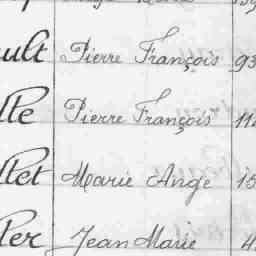 ult Pierre François 93
lle Pierre François 11
llet Marie Ange 15
ler Jean Marie 4